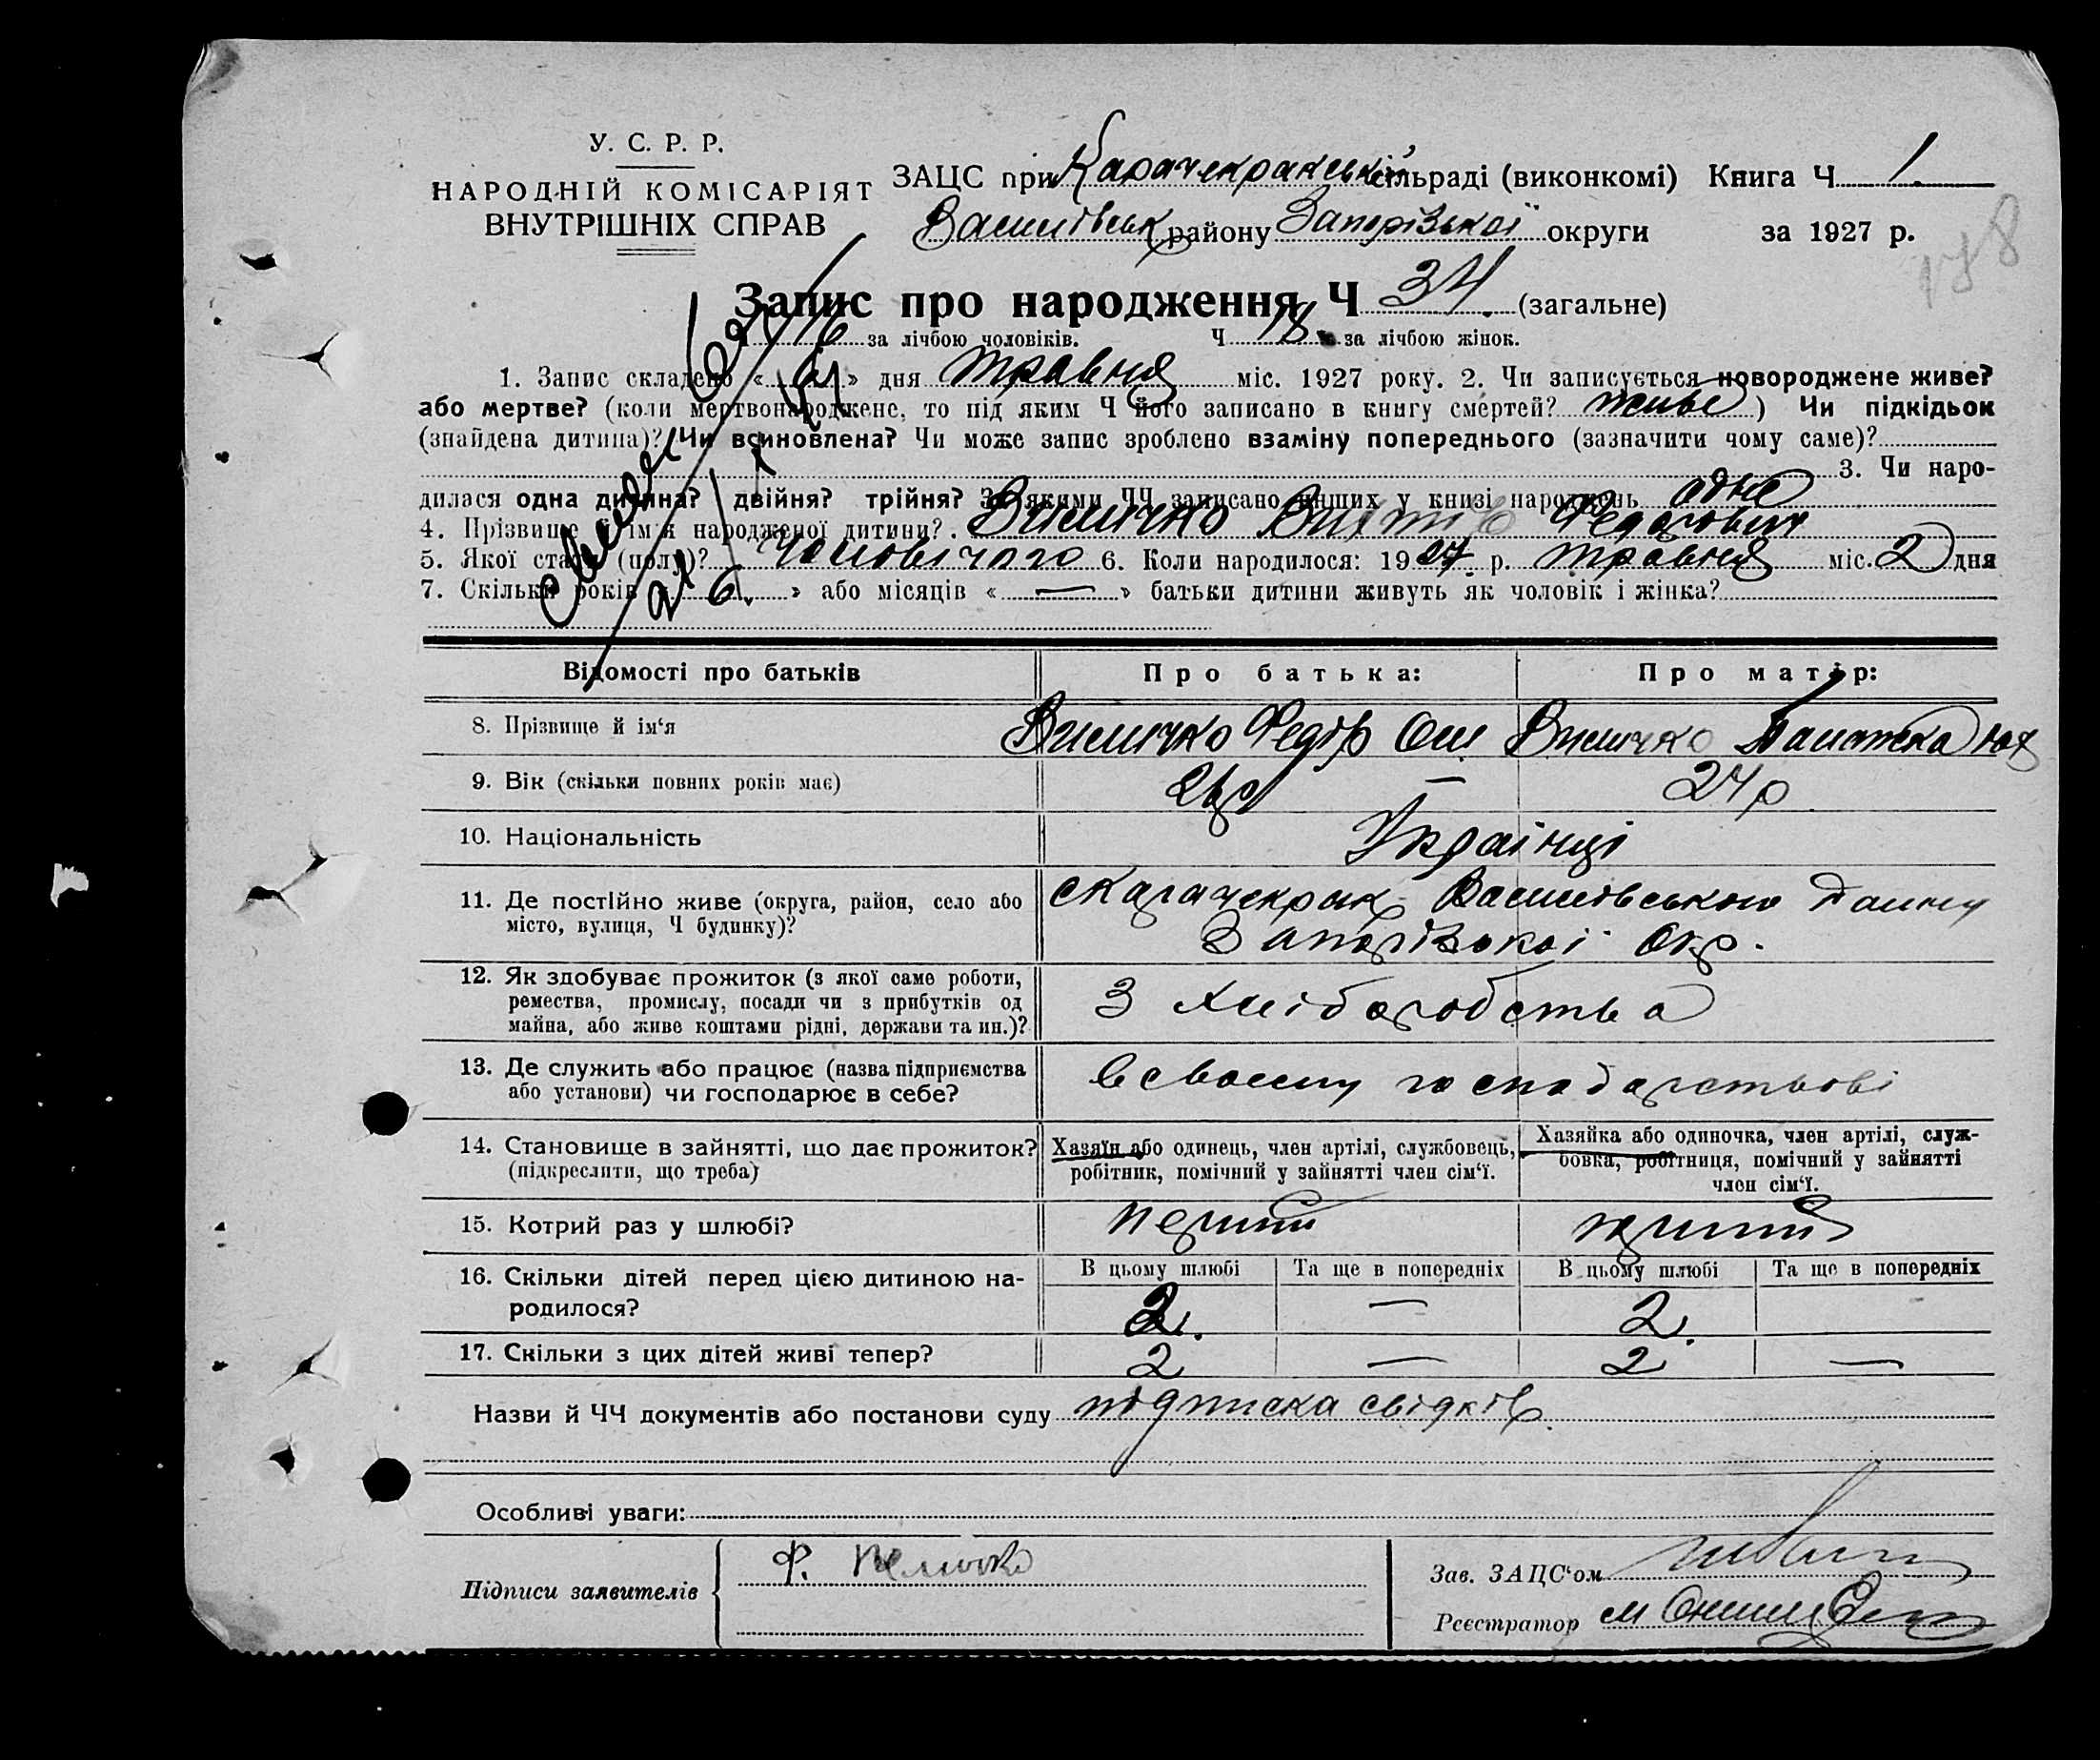 У. С. Р. Р.
НАРОДНІЙ КОМІСАРІЯТ
ВНУТРІШНІХ СПРАВ
ЗАЦС при Карачекракській сільраді (виконкомі) Книга Ч 1
Василівськ району Запорізької округи за 1927 р.
Запис про народження Ч 34. (загальне)
16 за лічбою чоловіків. Ч 18. за лічбою жінок.
1. Запис складено « » дня травня міс. 1927 року. 2. Чи записується новороджене живе?
або мертве? (коли мертвонароджене, то під яким Ч його записано в книгу смертей? живе ) Чи підкідьок
(знайдена дитина)? Чи всиновлена? Чи може запис зроблено взаміну попереднього (зазначити чому саме)?
3. Чи наро-
дилася одна дитина? двійня? трійня? За якими ЧЧ записано инших у книзі народжень одне
4. Прізвище й ім'я народженої дитини? Федорович
5. Якої статі (полу)? чоловічого 6. Коли народилося: 1927 р. травня міс. 2 дня
7. Скільки років « 6. » або місяців « — » батьки дитини живуть як чоловік і жінка?
Відомості про батьків Про батька: Про матір:
8. Прізвище й ім'я Федір
9. Вік (скільки повних років має) 26р — 24р
10. Національність Українці
11. Де постійно живе (округа, район, село або
місто, вулиця, Ч будинку)?
с Карачекрак Василівського району
Запорізької Окр.
12. Як здобуває прожиток (з якої саме роботи,
ремества, промислу, посади чи з прибутків од
майна, або живе коштами рідні, держави та ин.)?
З хліборобства
13. Де служить або працює (назва підприємства
або установи) чи господарює в себе?
в своєму господарствові
14. Становище в зайнятті, що дає прожиток?
(підкреслити, що треба)
Хазяїн або одинець, член артілі, службовець,
робітник, помічний у зайнятті член сім'ї.
Хазяйка або одиночка, член артілі, служ-
бовка, робітниця, помічний у зайнятті
член сім'ї.
15. Котрий раз у шлюбі? перший перший
16. Скільки дітей перед цією дитиною на-
родилося?
В цьому шлюбі Та ще в попередніх В цьому шлюбі Та ще в попередніх
2. — 2. -
17. Скільки з цих дітей живі тепер? 2 — 2 —
Назви й ЧЧ документів або постанови суду підписка свідків.
Особливі уваги:
Підписи заявителів Ф.
Зав. ЗАЦС'ом
Реєстратор